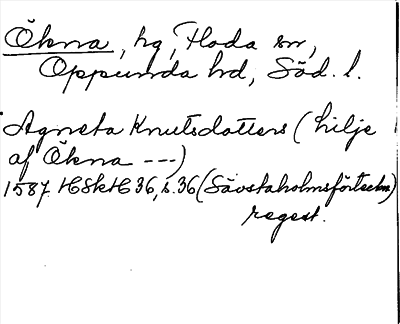 Ökna, hg, Floda sn,
Oppunda hd, Söd. l.
Agneta Knutsdotters (Lilje
af Ökna ---)
1587 HSkH 36, s. 36 (Sävstaholmsförteckn)
regest.